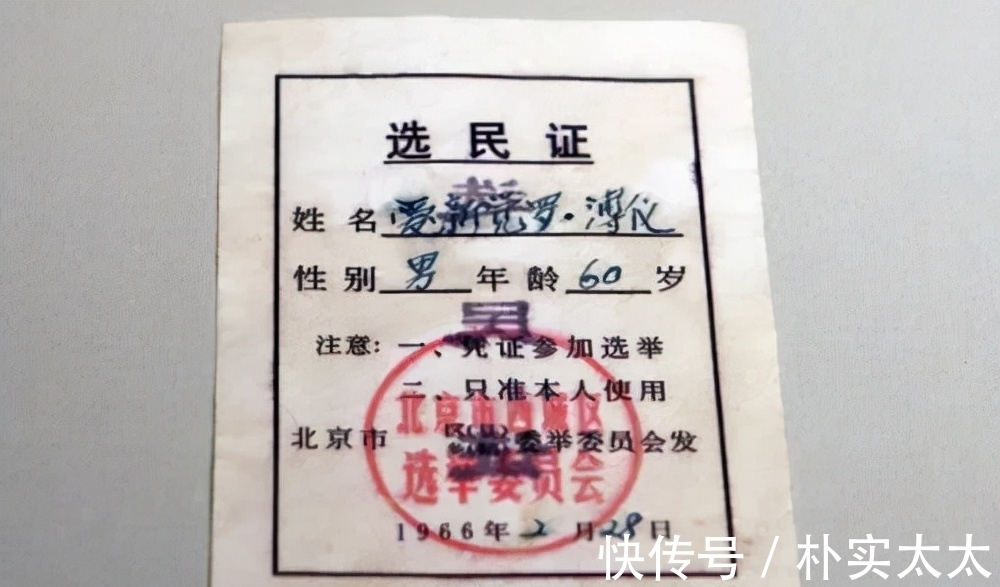 选民证
姓名 爱新觉罗·溥仪
性别 男 年龄 60 岁
男
注意：一、凭证参加选举
二、只准本人使用
北京市西城区
北京市 选举委员会发
选举委员会
1966年2月28日
快传号 / 朴实太太